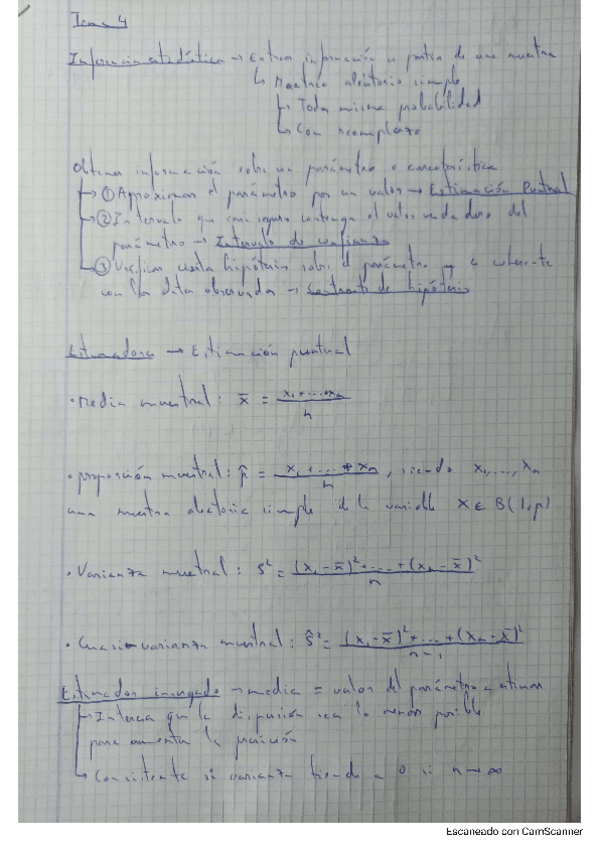 Tema 4
Inferencia estadística → Extraer información a partir de una muestra
↳ Muestreo aleatorio simple
↳ Toda misma probabilidad
↳ Con reemplazo
Obtener información sobre un parámetro o característica
→ ① Approximar el parámetro por un valor → Estimación Puntual
→ ② Intervalo que casi seguro contenga el valor verdadero del
parámetro → Intervalo de confianza
→ ③ Verificar cierta hipótesis sobre el parámetro y coherente
con los data observados → Contraste de hipótesis
Estimadores → Estimación puntual
• Media muestral: x̄ = (x₁ + ... + xₙ) / n
• proporción muestral: p̂ = (x₁ + ... + xₙ) / n, siendo x₁, ..., xₙ
una muestra aleatoria simple de la variable X ∈ B(1, p)
• Varianza muestral: s² = ((x₁ - x̄)² + ... + (xₙ - x̄)²) / n
• Cuasi-varianza muestral: ŝ² = ((x₁ - x̄)² + ... + (xₙ - x̄)²) / n-1
Estimador insesgado → media = valor del parámetro a estimar
→ Interesa que la dispersión sea lo menor posible
para aumentar la precisión
↳ Consistente si varianza tiende a 0 si n → ∞
Escaneado con CamScanner